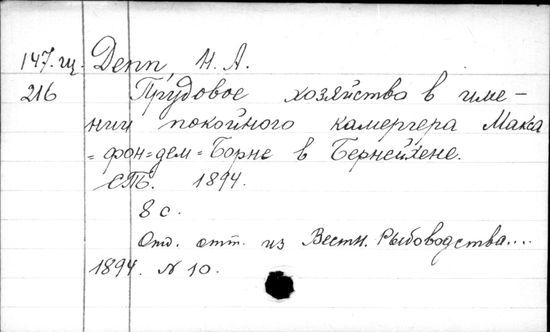 147.гц. Депп, Н. А.
216 Прудовое хозяйство в име-
нии покойного камергера Макса
=фон=дем=Борне в Бернейхене.
СПб. 1894.
8 с.
Отд. отт. из Вестн. Рыбоводства....
1894. N 10.